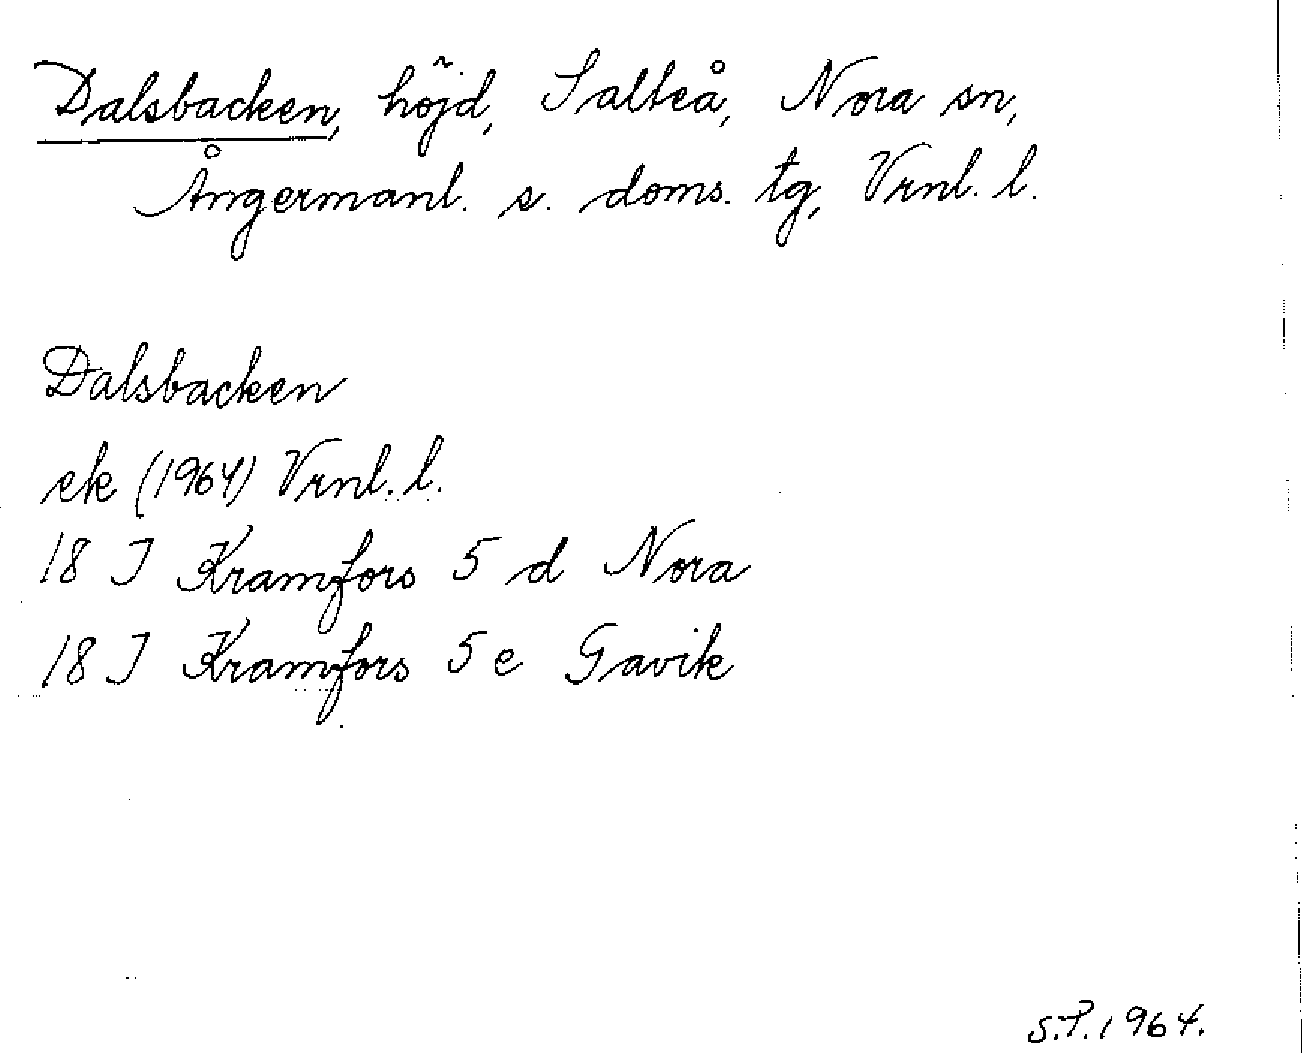 Dalsbacken, höjd, Salteå, Nora sn,
Ångermanl. s. doms. tg, Vrnl. l.
Dalsbacken
ek (1964) Vrnl. l.
18 J Kramfors 5 d Nora
18 J Kramfors 5 e Gavik
S.P. 1964.